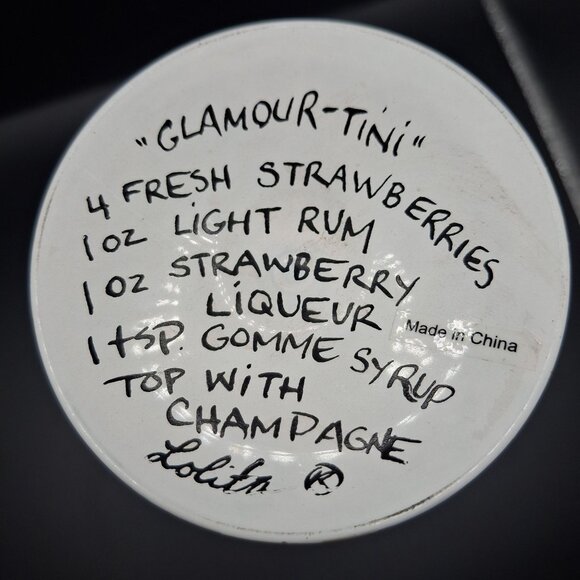 "GLAMOUR-TiNi"
4 FRESH STRAWBERRIES
1 OZ LIGHT RUM
1 OZ STRAWBERRY
LiQUEUR
1 tSP. GOMME SYRUP
TOP WiTH
CHAMPAGNE
Lolita ®
Made in China